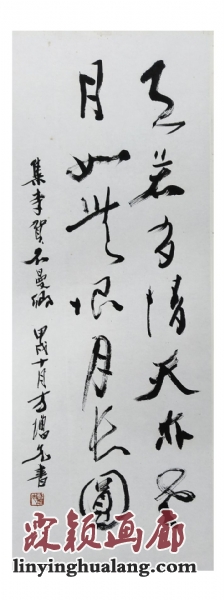 天若有情天亦老
月如無恨月長圓
集李賀石曼卿
甲戌十月方增先書
霖颖画廊
linyinghualang.com